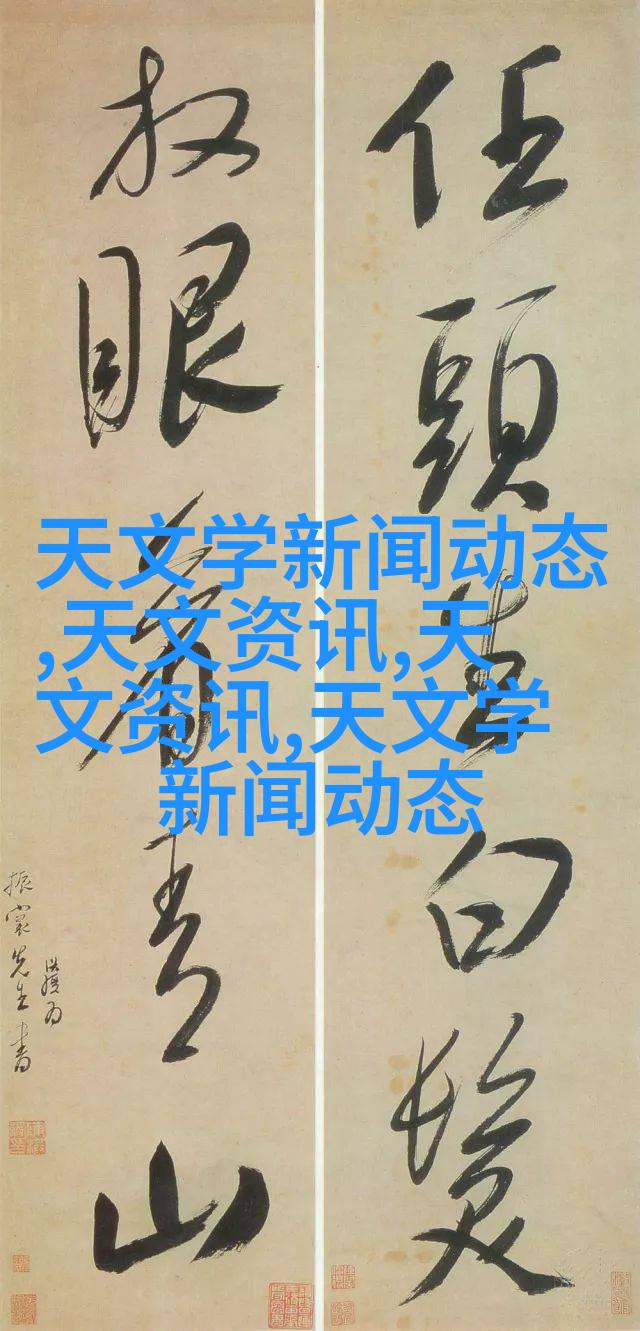 任頭生白髮
放眼看青山
振裳先生書
天文学新闻动态
,天文资讯,天
文资讯,天文学
新闻动态